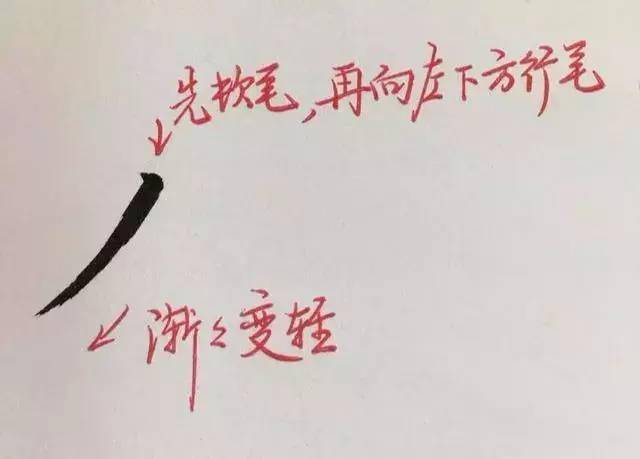 先笔,再向左下方行笔
渐々变轻